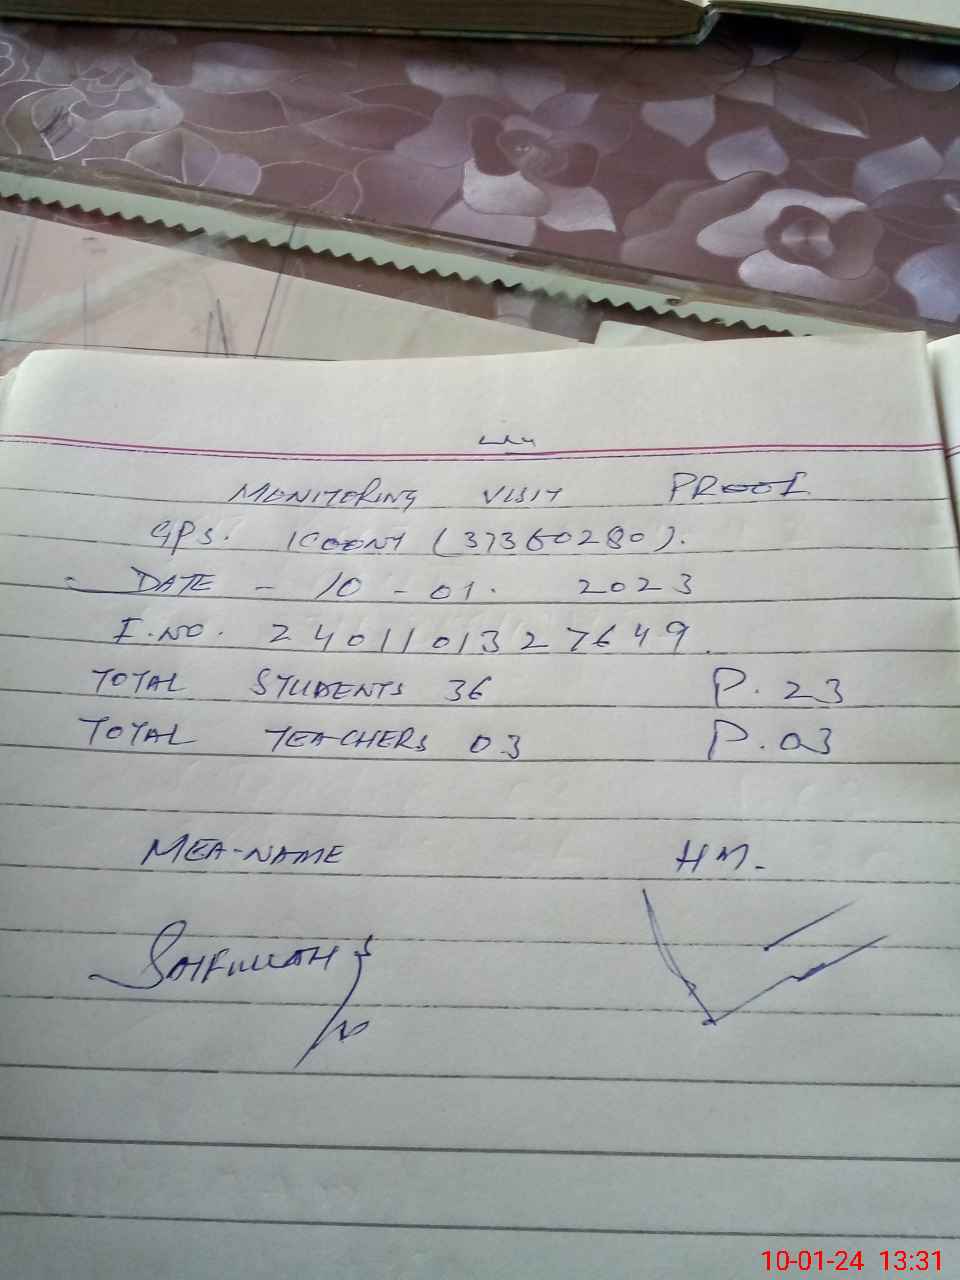 MONITORING VISIT PROOF
GPS. KOONY (37360280).
DATE - 10 - 01. 2023
I.NO. 2401101327649
TOTAL STUDENTS 36 P. 23
TOTAL TEACHERS 03 P. 03
MEA-NAME HM.
SAIFULLAH
10-01-24 13:31